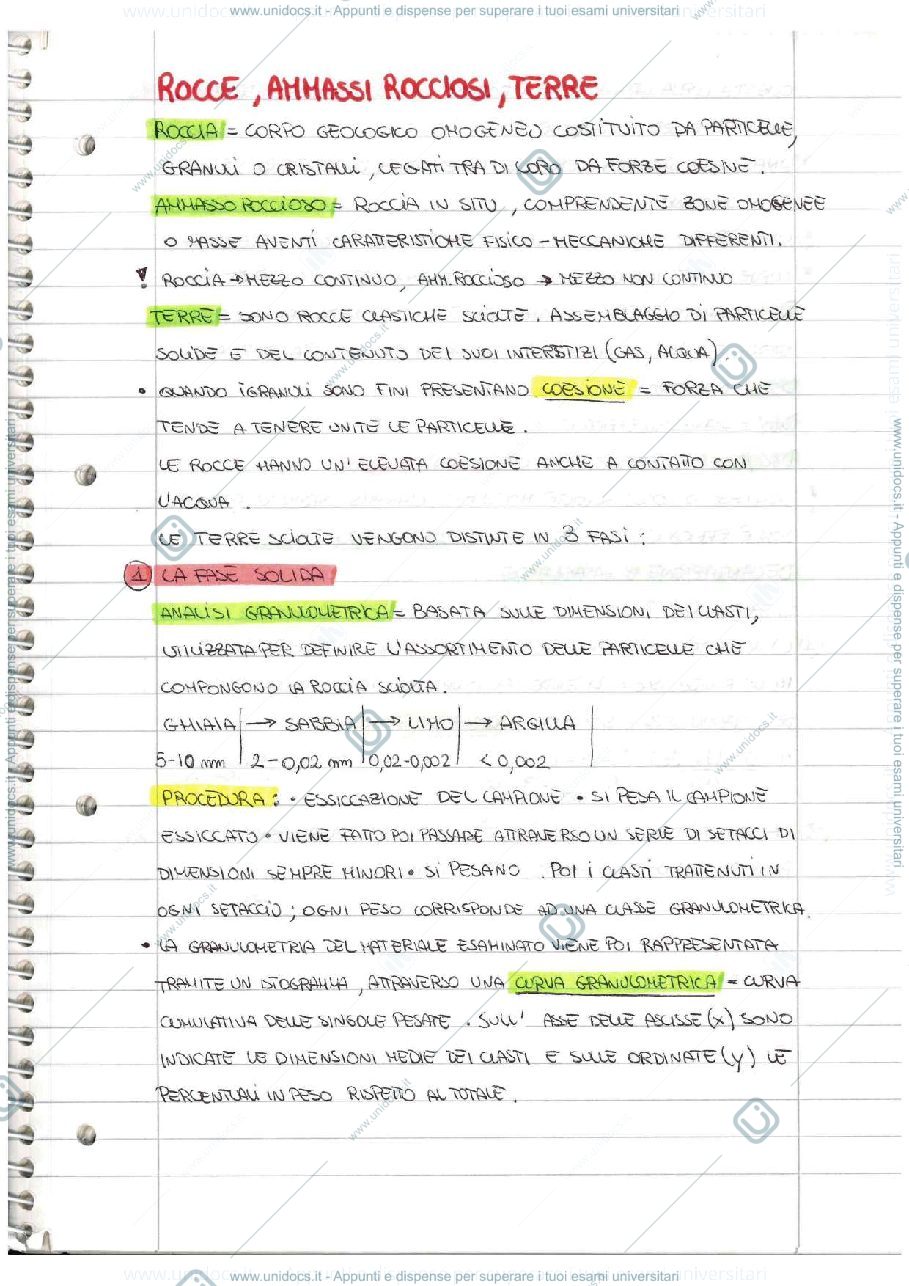 www.unidocs.it - Appunti e dispense per superare i tuoi esami universitari
ROCCE, AMMASSI ROCCIOSI, TERRE
ROCCIA = CORPO GEOLOGICO OMOGENEO COSTITUITO DA PARTICELLE,
GRANULI O CRISTALLI, LEGATI TRA DI LORO DA FORZE COESIVE.
AMMASSO ROCCIOSO = ROCCIA IN SITU, COMPRENDENTE ZONE OMOGENEE
O MASSE AVENTI CARATTERISTICHE FISICO-MECCANICHE DIFFERENTI.
! ROCCIA → MEZZO CONTINUO, AMM. ROCCIOSO → MEZZO NON CONTINUO
TERRE = SONO ROCCE CLASTICHE SCIOLTE. ASSEMBLAGGIO DI PARTICELLE
SOLIDE E DEL CONTENUTO DEI SUOI INTERSTIZI (GAS, ACQUA)
• QUANDO I GRANULI SONO FINI PRESENTANO COESIONE = FORZA CHE
TENDE A TENERE UNITE LE PARTICELLE.
LE ROCCE HANNO UN'ELEVATA COESIONE ANCHE A CONTATTO CON
L'ACQUA.
LE TERRE SCIOLTE VENGONO DISTINTE IN 3 FASI:
1 LA FASE SOLIDA
ANALISI GRANULOMETRICA = BASATA SULLE DIMENSIONI DEI CLASTI,
UTILIZZATA PER DEFINIRE L'ASSORTIMENTO DELLE PARTICELLE CHE
COMPONGONO LA ROCCIA SCIOLTA.
GHIAIA → SABBIA → LIMO → ARGILLA
5-10 mm 2-0,02 mm 0,02-0,002 < 0,002
PROCEDURA: • ESSICCAZIONE DEL CAMPIONE • SI PESA IL CAMPIONE
ESSICCATO • VIENE FATTO POI PASSARE ATTRAVERSO UN SERIE DI SETACCI DI
DIMENSIONI SEMPRE MINORI • SI PESANO . POI I CLASTI TRATTENUTI IN
OGNI SETACCIO; OGNI PESO CORRISPONDE AD UNA CLASSE GRANULOMETRICA.
• LA GRANULOMETRIA DEL MATERIALE ESAMINATO VIENE POI RAPPRESENTATA
TRAMITE UN ISTOGRAMMA, ATTRAVERSO UNA CURVA GRANULOMETRICA = CURVA
CUMULATIVA DELLE SINGOLE PESATE. SULL' ASSE DELLE ASCISSE (x) SONO
INDICATE LE DIMENSIONI MEDIE DEI CLASTI E SULLE ORDINATE (y) LE
PERCENTUALI IN PESO RISPETTO AL TOTALE.
www.unidocs.it - Appunti e dispense per superare i tuoi esami universitari